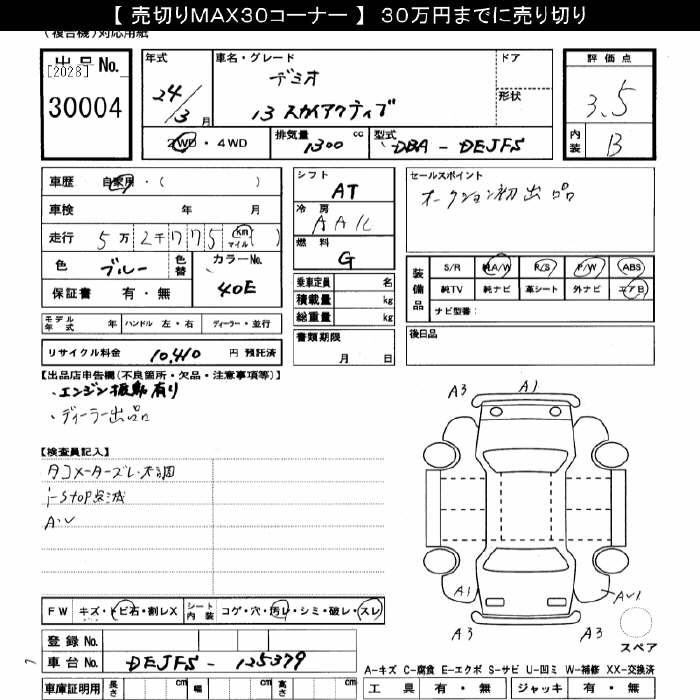 【 売切りMAX30コーナー 】 30万円までに売り切り
(複合機)対応用紙
出品No.
[2028]
30004
年式 24/3月
車名・グレード デミオ
13 スカイアクティブ
ドア
形状
2WD・4WD
排気量 1300 cc
型式 DBA - DEJFS
評価点
3.5
内装 B
車歴 自家用・( )
車検 年 月
走行 5万2千775 km マイル ( )
色 ブルー 色替
カラーNo. 40E
保証書 有・無
モデル年式 年 ハンドル 左・右 ディーラー・並行
リサイクル料金 10,410 円 預託済
シフト AT
冷房 AAC
燃料 G
乗車定員 名
積載量 kg
総重量 kg
書類期限
月 日
セールスポイント
オークション初出品
装備品
S/R 純A/W P/S P/W ABS
純TV 純ナビ 革シート 外ナビ エアB
ナビ型番:
後日品
【出品店申告欄(不良箇所・欠品・注意事項等)】
・エンジン振動有り
・ディーラー出品
【検査員記入】
タコメーターズレ・不調
i-stop点滅
A・U
A3 A1
A3
A1 AU1
A3 A3
スペア
FW キズ・トビ石・割レX シート内装 コゲ・穴・汚レ・シミ・破レ・スレ
登録No.
車台No. DEJFS - 125379
車庫証明用 長さ cm 幅 cm 高さ cm
A-キズ C-腐食 E-エクボ S-サビ U-凹ミ W-補修 XX-交換済
工具 有・無 ジャッキ 有・無